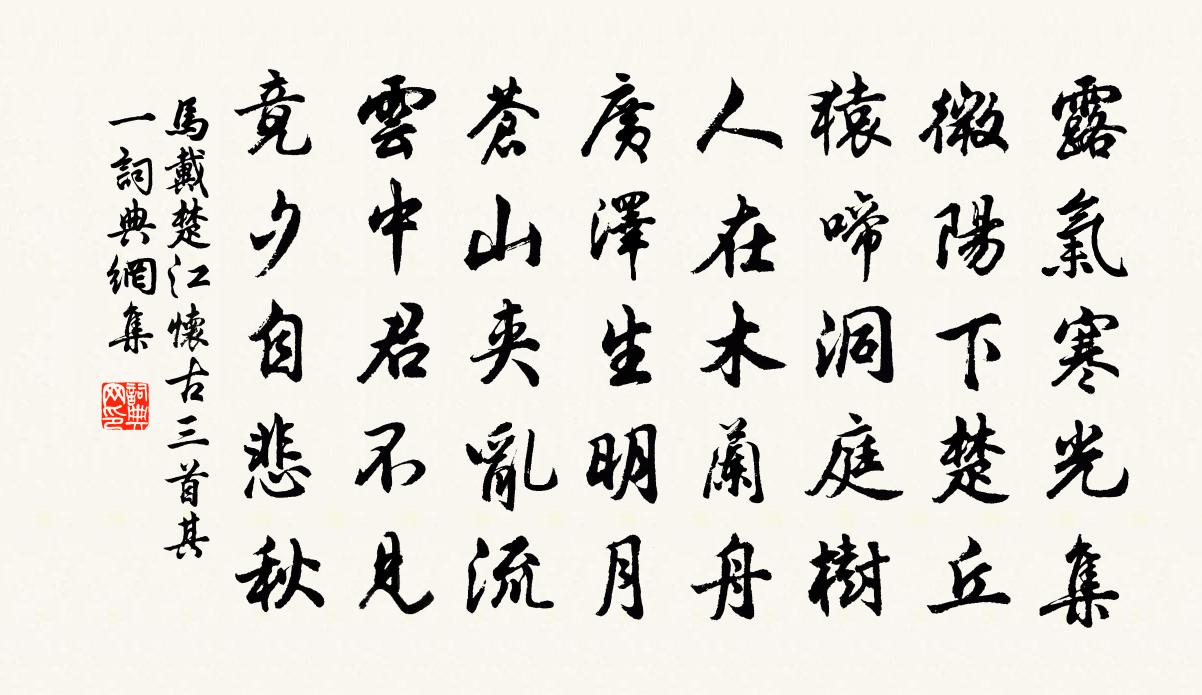 露氣寒光集
微陽下楚丘
猿啼洞庭樹
人在木蘭舟
廣澤生明月
蒼山夾亂流
雲中君不見
竟夕自悲秋
馬戴楚江懷古三首其
一詞典網集
詞典
网印